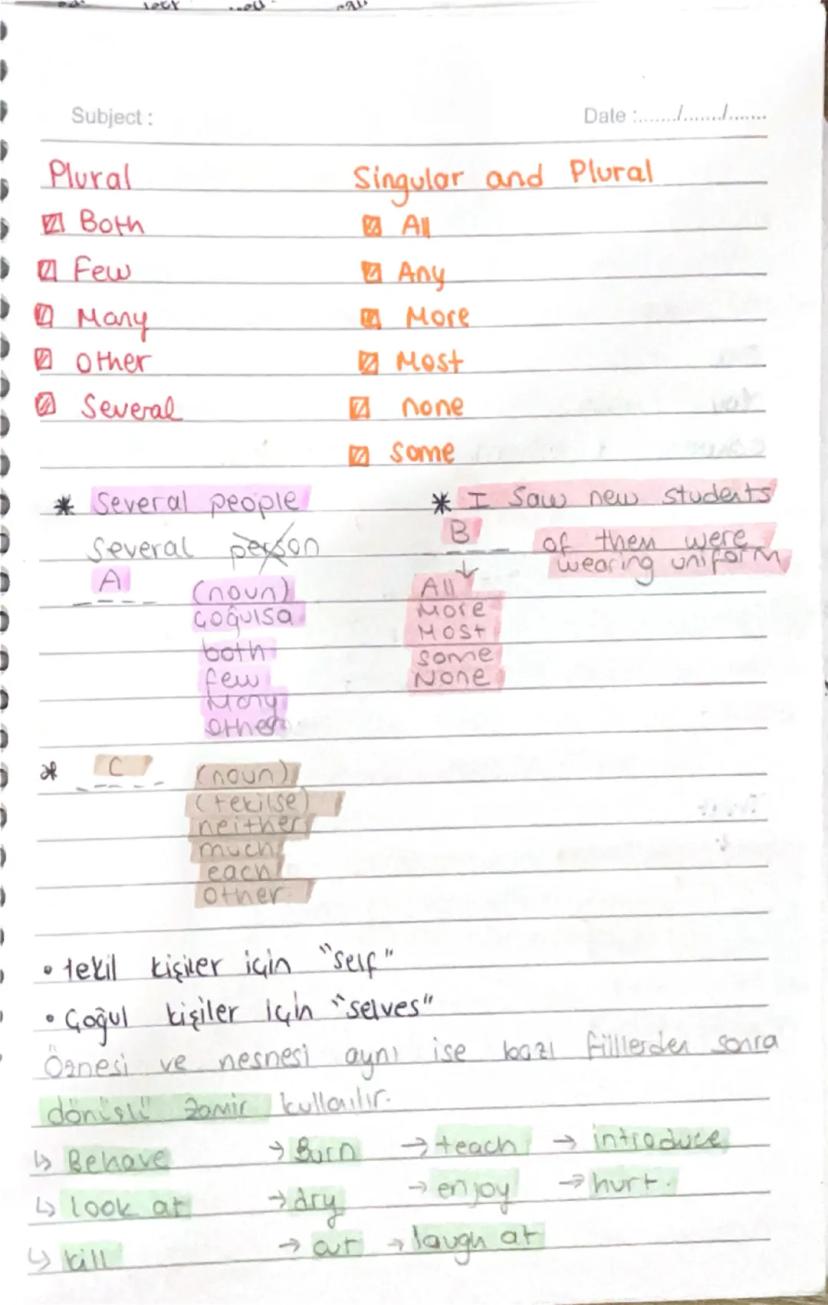 Subject :
Date :....../......./.......
Plural
Both
Few
Many
Other
Several
Singular and Plural
All
Any
More
Most
none
Some
* Several people
Several person
A
(noun)
çoğulsa
both
few
Many
other
* I saw new students
B
of them were
wearing uniform
All
More
Most
some
None
* C
(noun)
(tekilse)
neither
much
each
other
• tekil kişiler için "self"
• Çoğul kişiler için "selves"
Öznesi ve nesnesi aynı ise bazı fiillerden sonra
dönüşlü zamir kullanılır.
↳ Behave → Burn → teach → introduce
↳ look at → dry → enjoy → hurt.
↳ kill → cut → laugh at